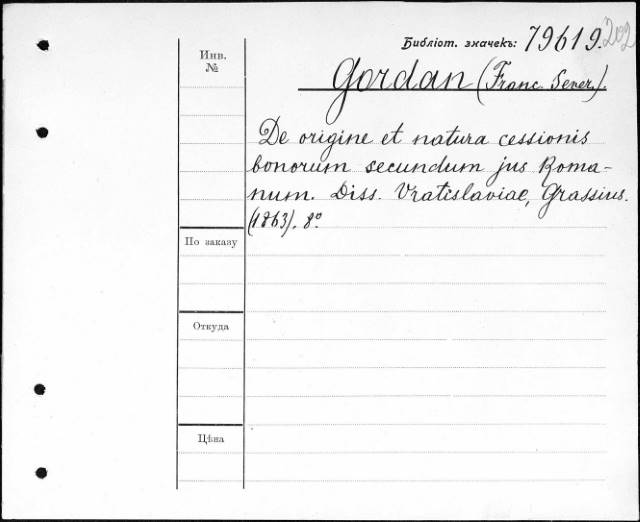 Библіот. значекъ: 79619. 202
Инв.
№
Gordan (Franc. Sever.).
De origine et natura cessionis
bonorum secundum jus Roma-
num. Diss. Vratislaviae, Grassius.
(1863). 8º
По заказу
Откуда
Цѣна